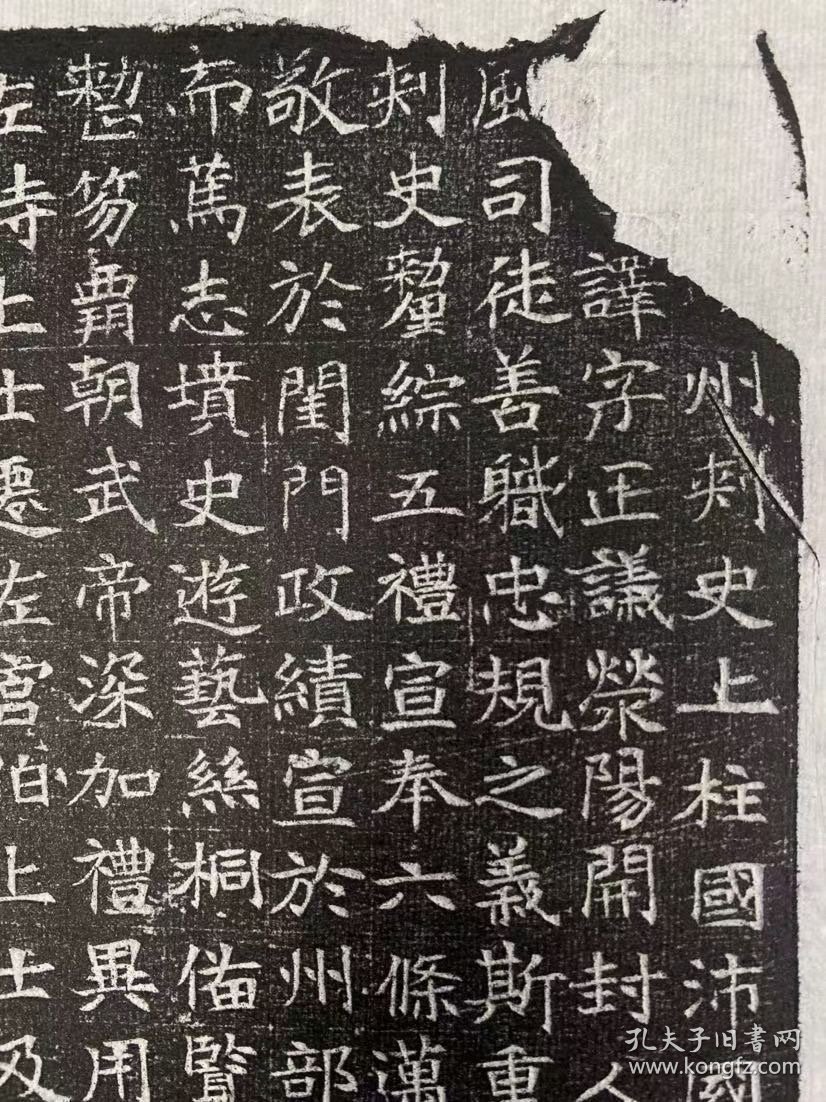 州刺史上柱國沛國
譯字正議滎陽開封人
風司徒善職忠規之義斯重
刺史釐綜五禮宣奉六條
敬表於閨門政績宣於州部
而篤志墳史遊藝絲桐備覽
整笏肅朝武帝深加禮異用
左侍上士遷左宮伯上士及
孔夫子旧书网
www.kongfz.com